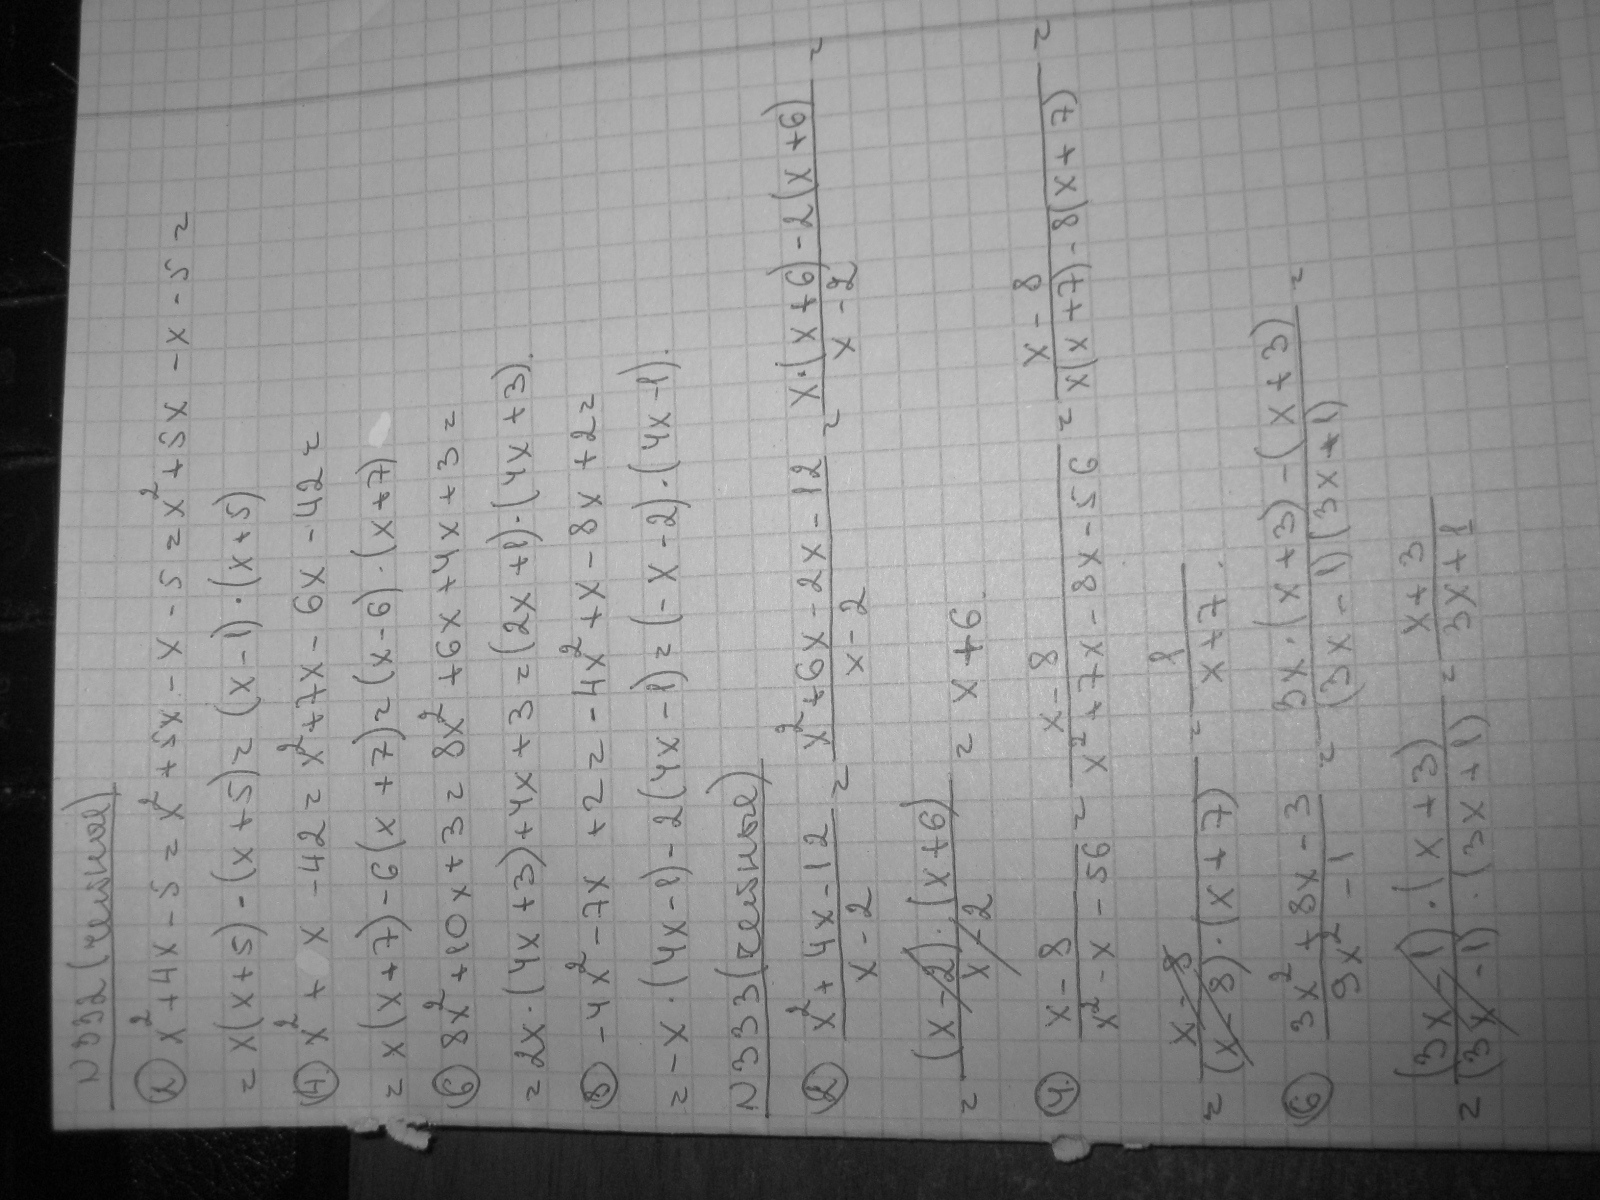 N332 (четные)
② x² + 4x - 5 = x² + 5x - x - 5 = x² + 5x - x - 5 =
= x(x + 5) - (x + 5) = (x - 1) · (x + 5)
④ x² + x - 42 = x² + 7x - 6x - 42 =
= x(x + 7) - 6(x + 7) = (x - 6) · (x + 7)
⑥ 8x² + 10x + 3 = 8x² + 6x + 4x + 3 =
= 2x · (4x + 3) + 4x + 3 = (2x + 1) · (4x + 3).
⑧ -4x² - 7x + 2 = -4x² + x - 8x + 2 =
= -x · (4x - 1) - 2(4x - 1) = (-x - 2) · (4x - 1).
N333 (четные)
② (x² + 4x - 12)/(x - 2) = (x² + 6x - 2x - 12)/(x - 2) = (x · (x + 6) - 2(x + 6))/(x - 2) =
= ((x - 2) · (x + 6))/(x - 2) = x + 6.
④ (x - 8)/(x² - x - 56) = (x - 8)/(x² + 7x - 8x - 56) = (x - 8)/(x(x + 7) - 8(x + 7)) =
= (x - 8)/((x - 8) · (x + 7)) = 1/(x + 7).
⑥ (3x² + 8x - 3)/(9x² - 1) = (3x · (x + 3) - (x + 3))/((3x - 1)(3x + 1)) =
= ((3x - 1) · (x + 3))/((3x - 1) · (3x + 1)) = (x + 3)/(3x + 1)